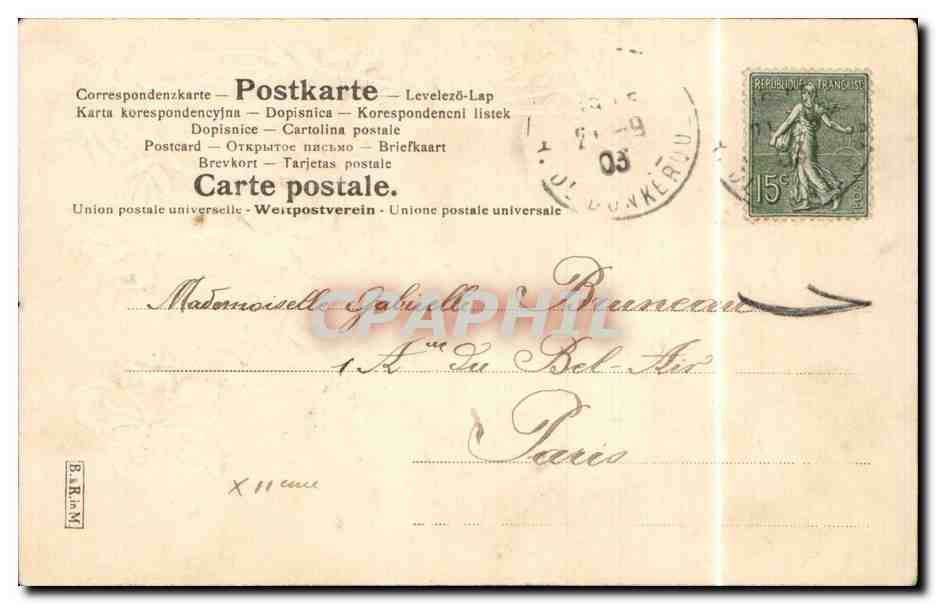 Correspondenzkarte — Postkarte — Levelező-Lap
Karta korespondencyjna — Dopisnica — Korespondencni listek
Dopisnice — Cartolina postale
Postcard — Открытое письмо — Briefkaart
Brevkort — Tarjetas postale
Carte postale.
Union postale universelle - Weltpostverein - Unione postale universale
REPUBLIQUE FRANÇAISE
15c
-9
03
DUNKERQU
Mademoiselle Gabrielle Bruneau
1 Aue du Bel-Air
Paris
XIIeme
B. & R. in M.
CPAPHIL